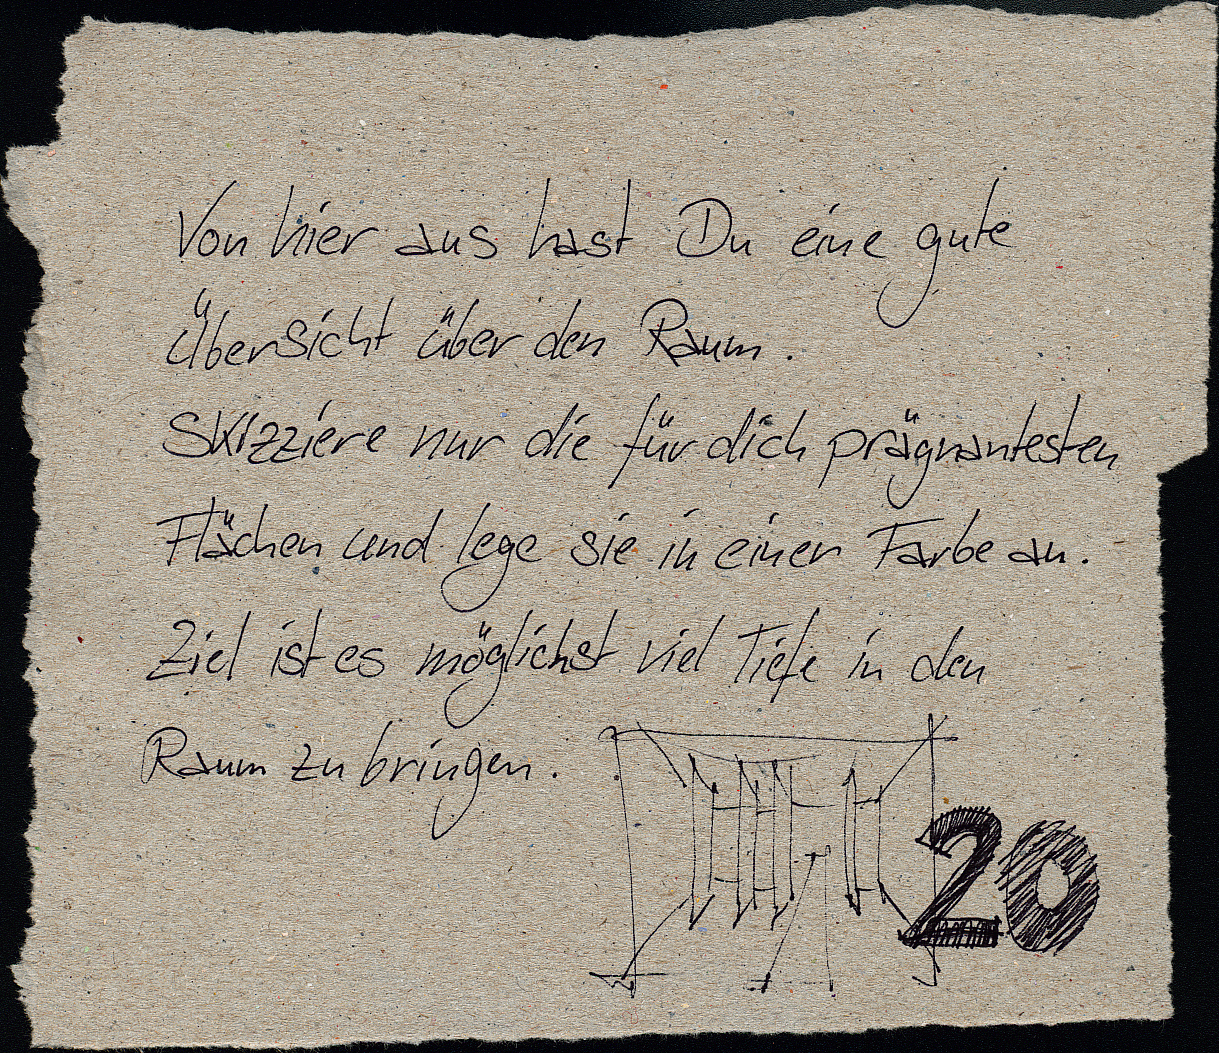 Von hier aus hast Du eine gute
Übersicht über den Raum.
Skizziere nur die für dich prägnantesten
Flächen und lege sie in einer Farbe an.
Ziel ist es möglichst viel Tiefe in den
Raum zu bringen.
20